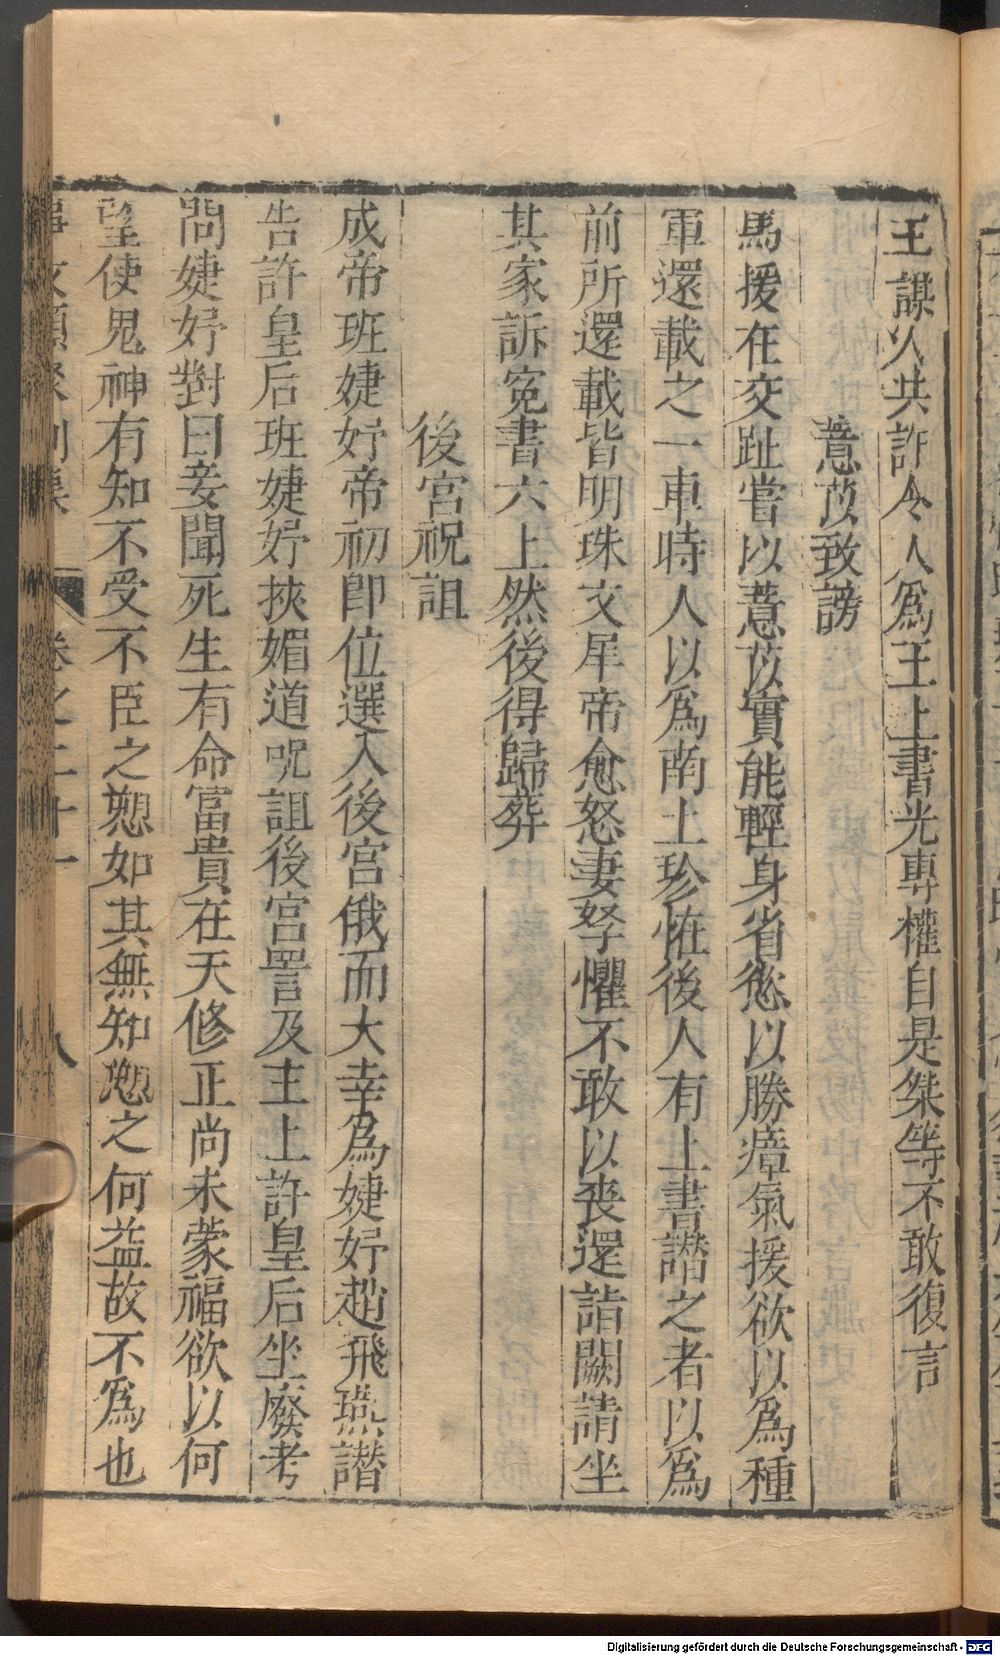 王謀人共詐令人爲王上書光專權自是桀等不敢復言
薏苡致謗
馬援在交趾嘗以薏苡實能輕身省慾以勝瘴氣援欲以爲種
軍還載之一車時人以爲南土珍怪後人有上書譖之者以爲
前所還載皆明珠文犀帝愈怒妻孥懼不敢以喪還詣闕請坐
其家訴寃書六上然後得歸葬
後宮祝詛
成帝班婕妤帝初卽位選入後宮俄而大幸爲婕妤趙飛燕譖
告許皇后班婕妤挾媚道呪詛後宮詈及主上許皇后坐廢考
問婕妤對曰妾聞死生有命富貴在天修正尚未蒙福欲以何
望使鬼神有知不受不臣之愬如其無知愬之何益故不爲也
事文類聚 別集 卷之二十一 八
Digitalisierung gefördert durch die Deutsche Forschungsgemeinschaft - DFG